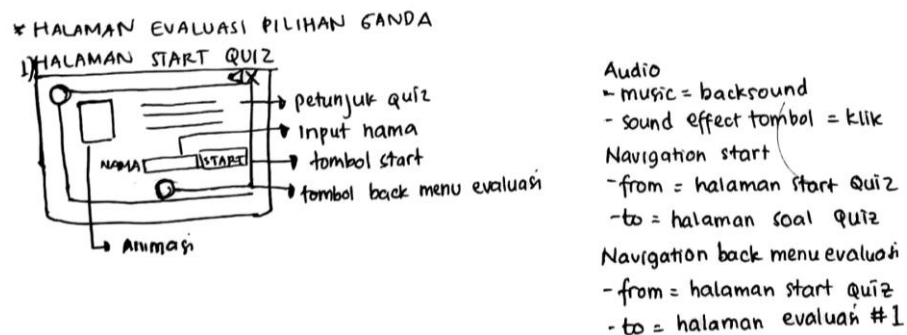 * HALAMAN EVALUASI PILIHAN GANDA
1) HALAMAN START QUIZ
petunjuk quiz
input nama
NAMA START
tombol start
tombol back menu evaluasi
Animasi
Audio
- music = backsound
- sound effect tombol = klik
Navigation start
- from = halaman start Quiz
- to = halaman soal Quiz
Navigation back menu evaluasi
- from = halaman start Quiz
- to = halaman evaluasi #1